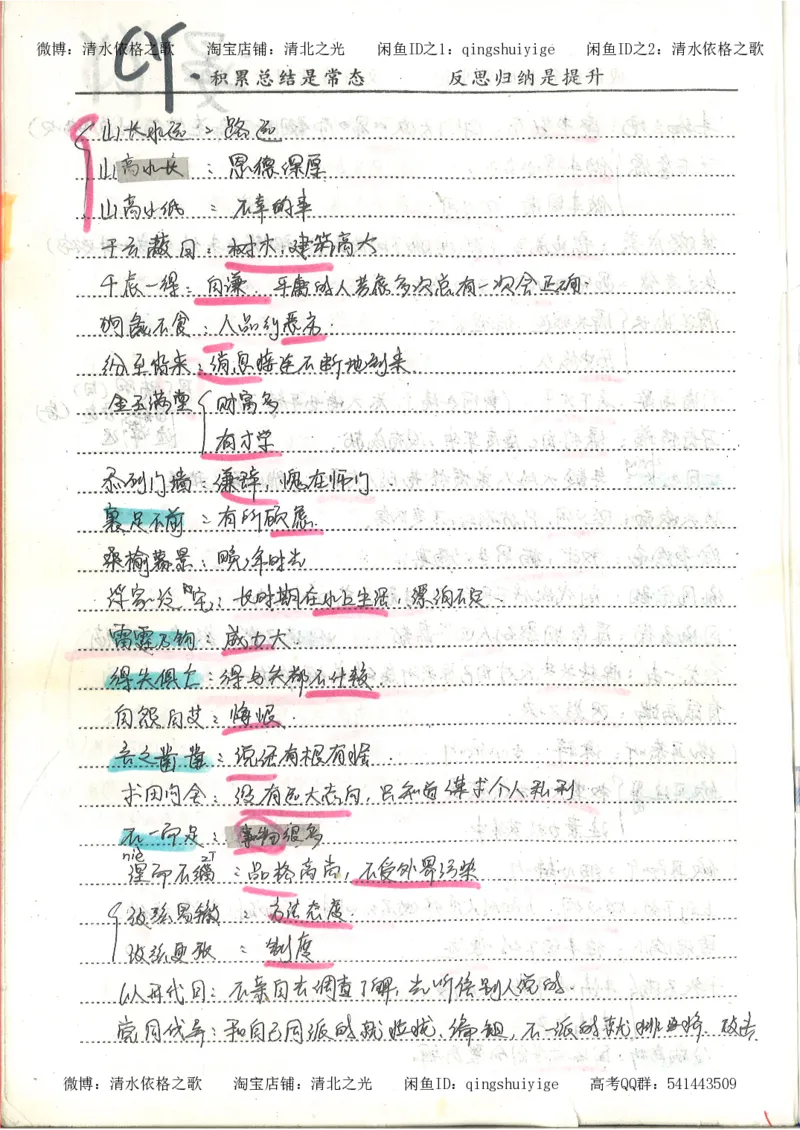 微博：清水依格之歌 淘宝店铺：清北之光 闲鱼ID之1：qingshuiyige 闲鱼ID之2：清水依格之歌
CY
·积累总结是常态 反思归纳是提升
山长水远：路远
山高水长：恩德深厚
山高水低：不幸的事
干云蔽日：树木,建筑高大
千虑一得：自谦，平庸的人考虑多次总有一次会正确.
狗彘不食：人品的恶劣.
纷至沓来：消息接连不断地到来
金玉满堂 财富多
有才学
忝列门墙：谦辞，愧在师门
裹足不前：有所顾虑.
桑榆暮景：晚年时光
浮家泛宅：长时期在水上生活，漂泊不定
雷霆万钧：威力大
得失俱亡：得与失都不计较.
自怨自艾：悔恨.
言之凿凿：说话有根有据.
求田问舍：没有远大志向，只知道谋求个人私利
不一而足：事物很多
niè zī
涅而不缁：品格高尚，不受外界污染
改弦易辙：方法态度.
改弦更张：制度
以耳代目：不亲自去调查了解，去听信别人说的.
党同伐异：和自己同派的就 ，不一派的就 攻击
微博：清水依格之歌 淘宝店铺：清北之光 闲鱼ID：qingshuiyige 高考QQ群：541443509